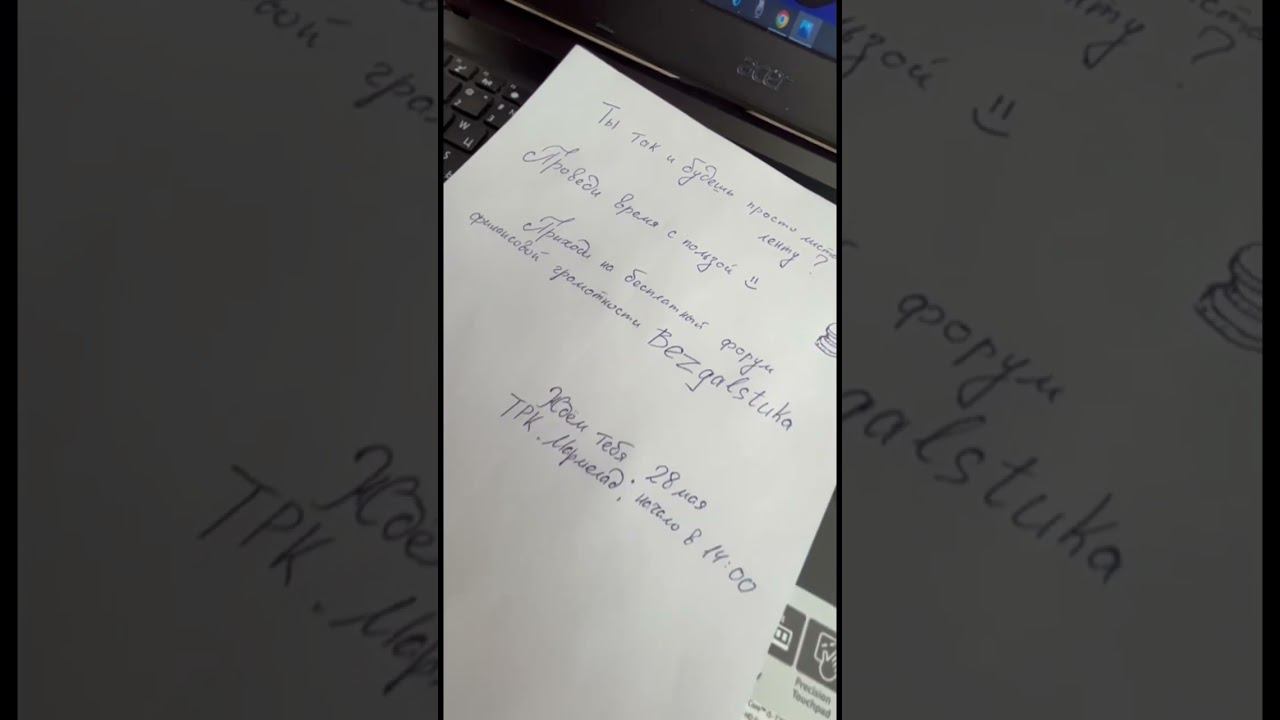 acer
Ты так и будешь просто листа
ленту?
Проведи время с пользой
Приходи на бесплатный форум
финансовой грамотности Bezgalstuka
Ждём тебя 28 мая
ТРК "Мармелад", начало в 14:00
Precision
Touchpad